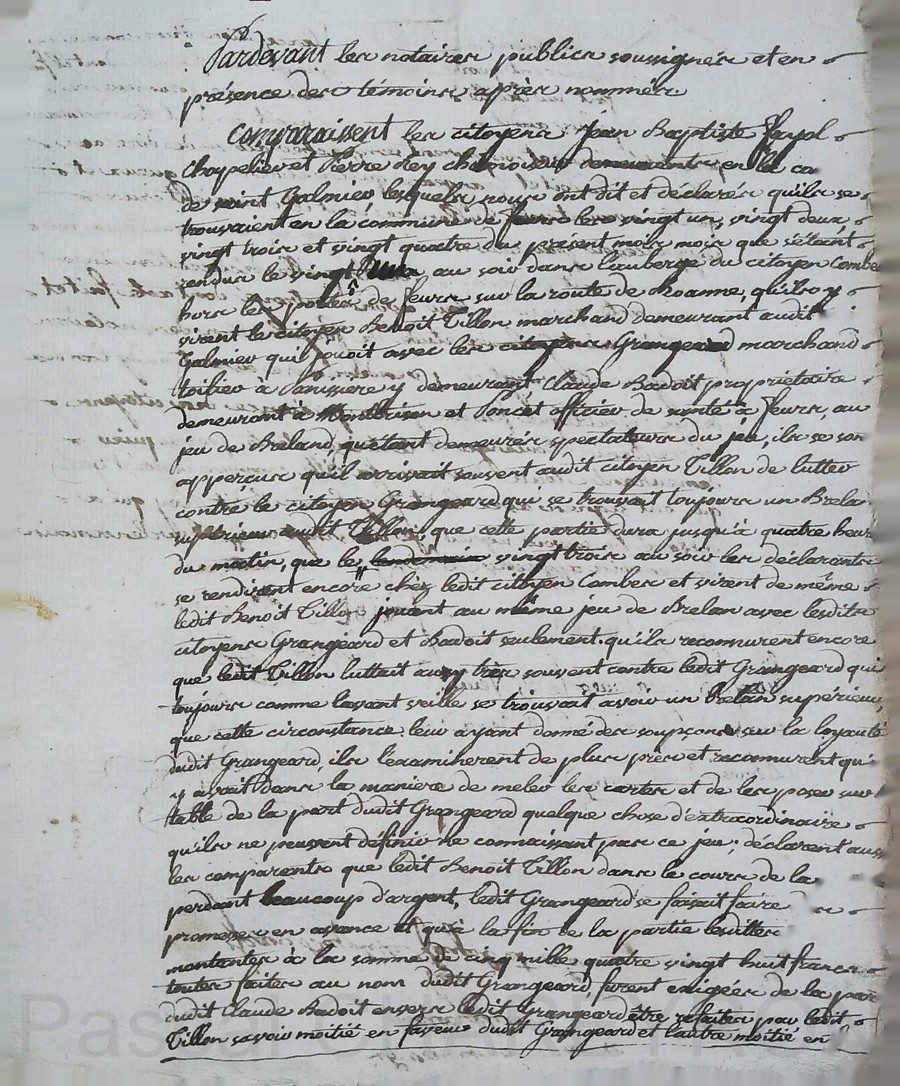 Pardevant les notaires publics soussignés et en
présence des témoins après nommés.
Comparaissent les citoyens Jean Baptiste Fayol
Chapelier et Pierre Rey chamoiseur demeurants en la co
de saint Galmier, lesquels nous ont dit et déclarés qu'ils se
trouvaient en la commune de feurs les vingt un, vingt deux,
vingt trois et vingt quatre du present mois mois que s'étant
rendus le vingt au soir dans l'auberge du citoyen Combe
hors les portes de feurs sur la route de Roanne, qu'ils y
virent le citoyen Benoit Tillon marchand demeurant audit
Galmier qui jouoit avec les citoyens Grangeard marchand
toilier à Panissiere y demeurant Claude Badoit propriétaire
demeurant à Montbrison et Poncet officier de santé à feurs, au
jeu de Breland, qu'étant demeurés spectateurs du jeu, ils se son
apperçus qu'il arrivait souvent audit citoyen Tillon de lutter
contre le citoyen Grangeard qui se trouvait toujours un Brela
supérieur audit Tillon, que cette partie dura jusqu'à quatre heur
du matin, que le lendemain vingt trois au soir les déclarants
se rendirent encore chez ledit citoyen Combes et virent de même
ledit Benoit Tillon jouant au même jeu de Brelan avec lesdits
citoyens Grangeard et Badoit seulement. qu'ils reconnurent encore
que ledit Tillon luttait aussy très souvent contre ledit Grangeard qui
toujours comme l'avant veille se trouvait avoir un brelan supérieur
que cette circonstance leur ayant donné des soupçons sur la loyauté
dudit Grangeard, ils l'examinerent de plus près et reconnurent qu'
y avait dans la manière de meler les cartes et de les poser sur
table de la part dudit Grangeard quelque chose d'extraordinaire
qu'ils ne peuvent définir ne connaissant pas ce jeu; déclarent aus
les comparants que ledit Benoit Tillon dans le cours de la
perdant beaucoup d'argent, ledit Grangeard se faisait faire
promesses en avance et qu'à la fin de la partie lesdittes
montantes à la somme de cinq mille quatre vingt huit francs
toutes faites au nom dudit Grangeard furent exigées de la par
dudit Claude Badoit envers ledit Grangeard être refaites par ledit
Tillon savoir moitié en faveur dudit Grangeard et l'autre moitié en